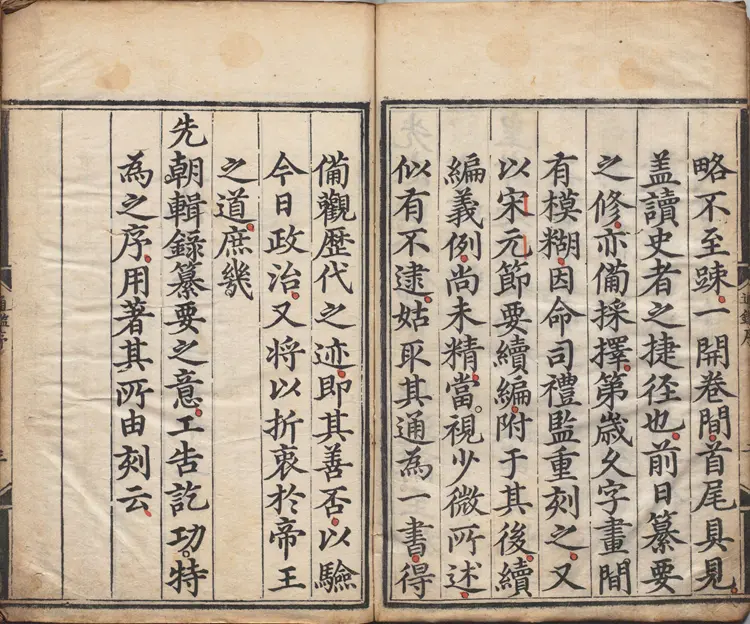 略不至踈一開卷間首尾具見
盖讀史者之捷徑也前日纂要
之修亦備採擇第歲久字畫間
有模糊因命司禮監重刻之又
以宋元節要續編附于其後續
編義例尚未精當視少微所述
似有不逮姑取其通為一書得
備觀歷代之迹即其善否以驗
今日政治又将以折衷於帝王
之道庶幾
先朝輯錄纂要之意工告訖功特
為之序用著其所由刻云